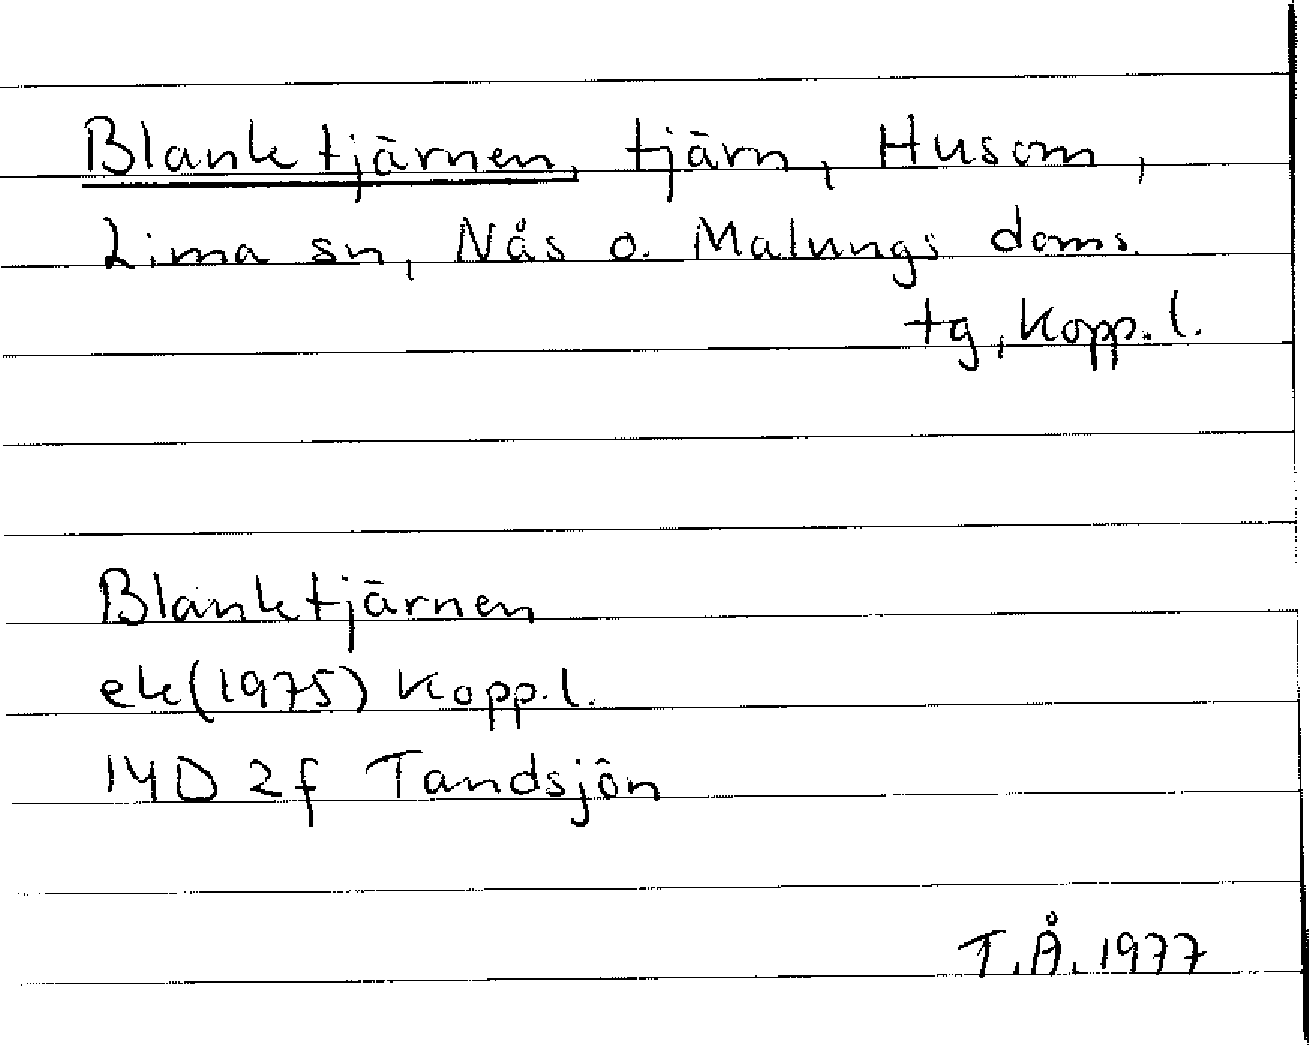 Blanktjärnen, tjärn, Husom,
Lima sn, Nås o. Malungs doms.
tg, Kopp. l.
Blanktjärnen
ek (1975) Kopp. l.
14D 2f Tandsjön
T.Å. 1977